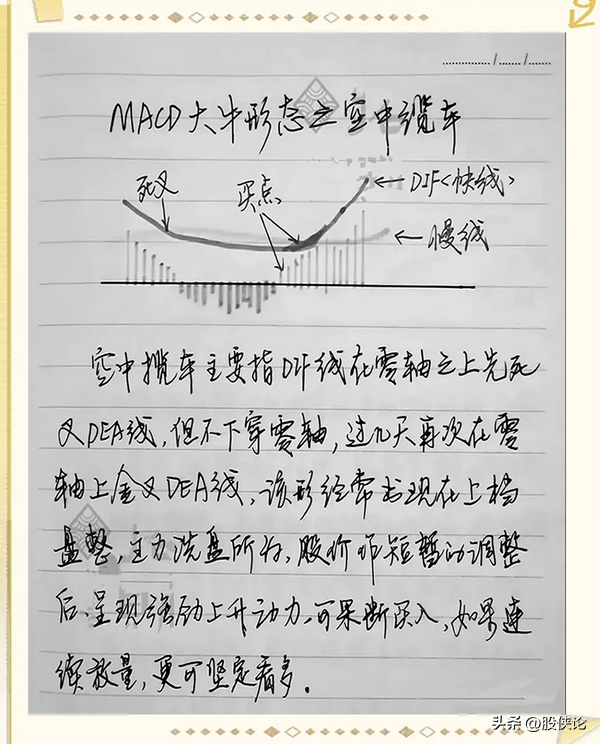 ....../....../......
MACD大牛形态之空中缆车
死叉
买点
DIF<快线>
慢线
空中揽车主要指DIF线在零轴之上先死
叉DEA线，但不下穿零轴，过几天再次在零
轴上金叉DEA线，该形经常出现在上档
盘整，主力洗盘所为，股价作短暂的调整
后、呈现强劲上升动力，可果断买入，如果连
续放量，更可坚定看多．
头条 @股侠论